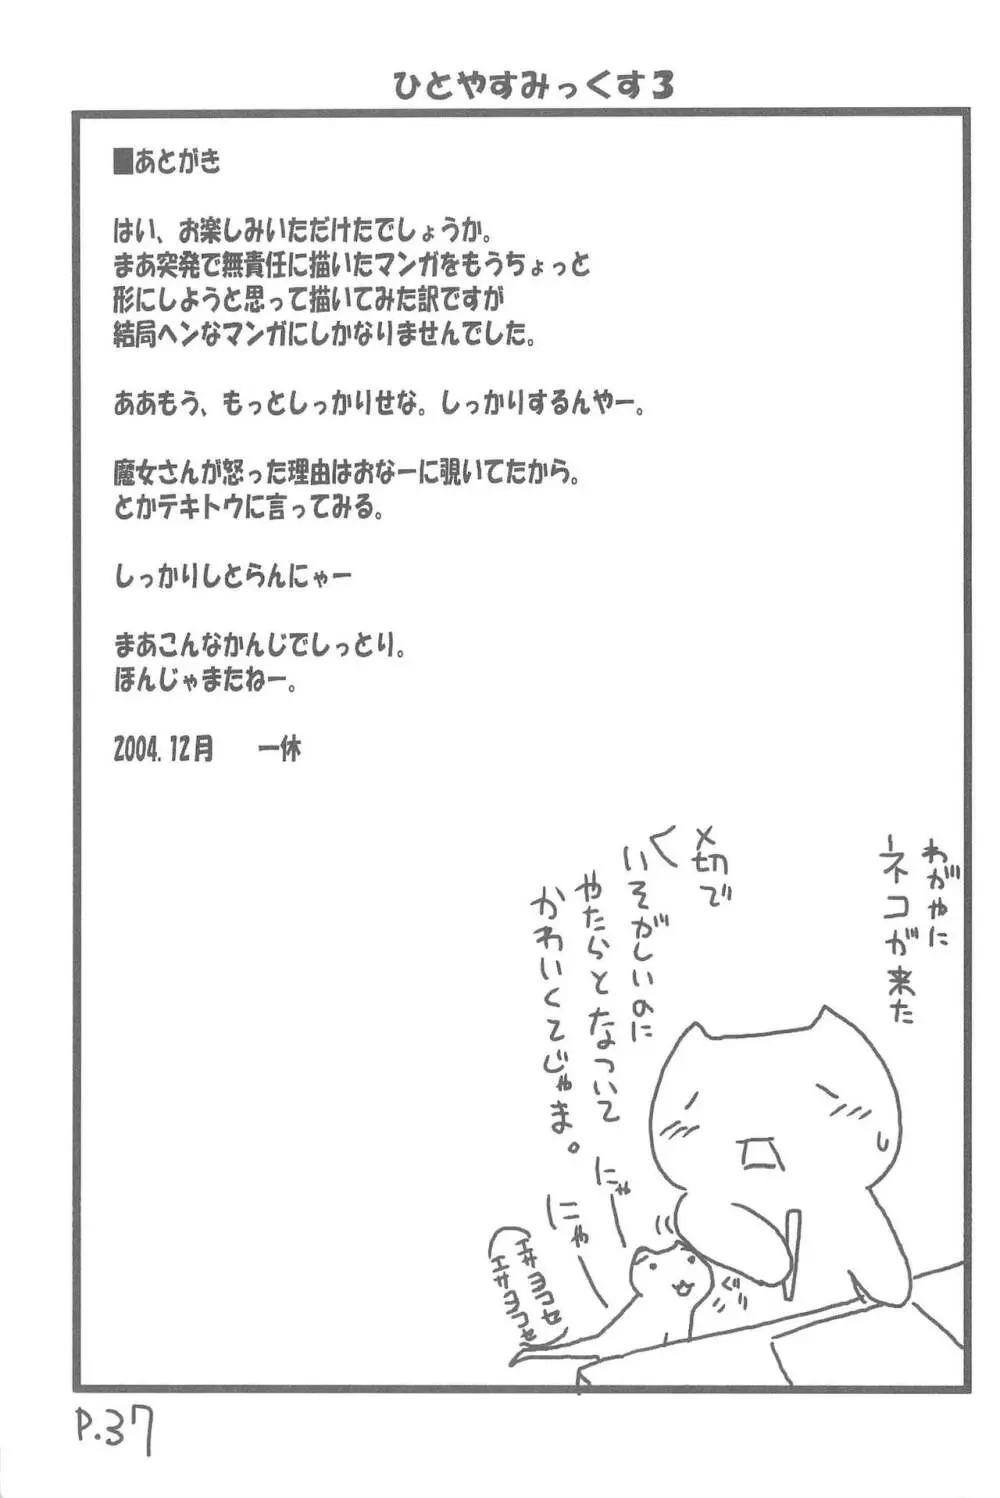 ひとやすみっくす3
■あとがき
はい、お楽しみいただけたでしょうか。
まあ突発で無責任に描いたマンガをもうちょっと
形にしようと思って描いてみた訳ですが
結局ヘンなマンガにしかなりませんでした。
ああもう、もっとしっかりせな。しっかりするんやー。
魔女さんが怒った理由はおなーに覗いてたから。
とかテキトウに言ってみる。
しっかりしとらんにゃー
まあこんなかんじでしっとり。
ほんじゃまたねー。
2004.12月　一休
わがやに
ネコが来た
〆切で
いそがしいのに
やたらとなついて
かわいくてじゃま。
にゃー
にゃー
エサヨコセ
エサヨコセ
ぐぐ
P.37